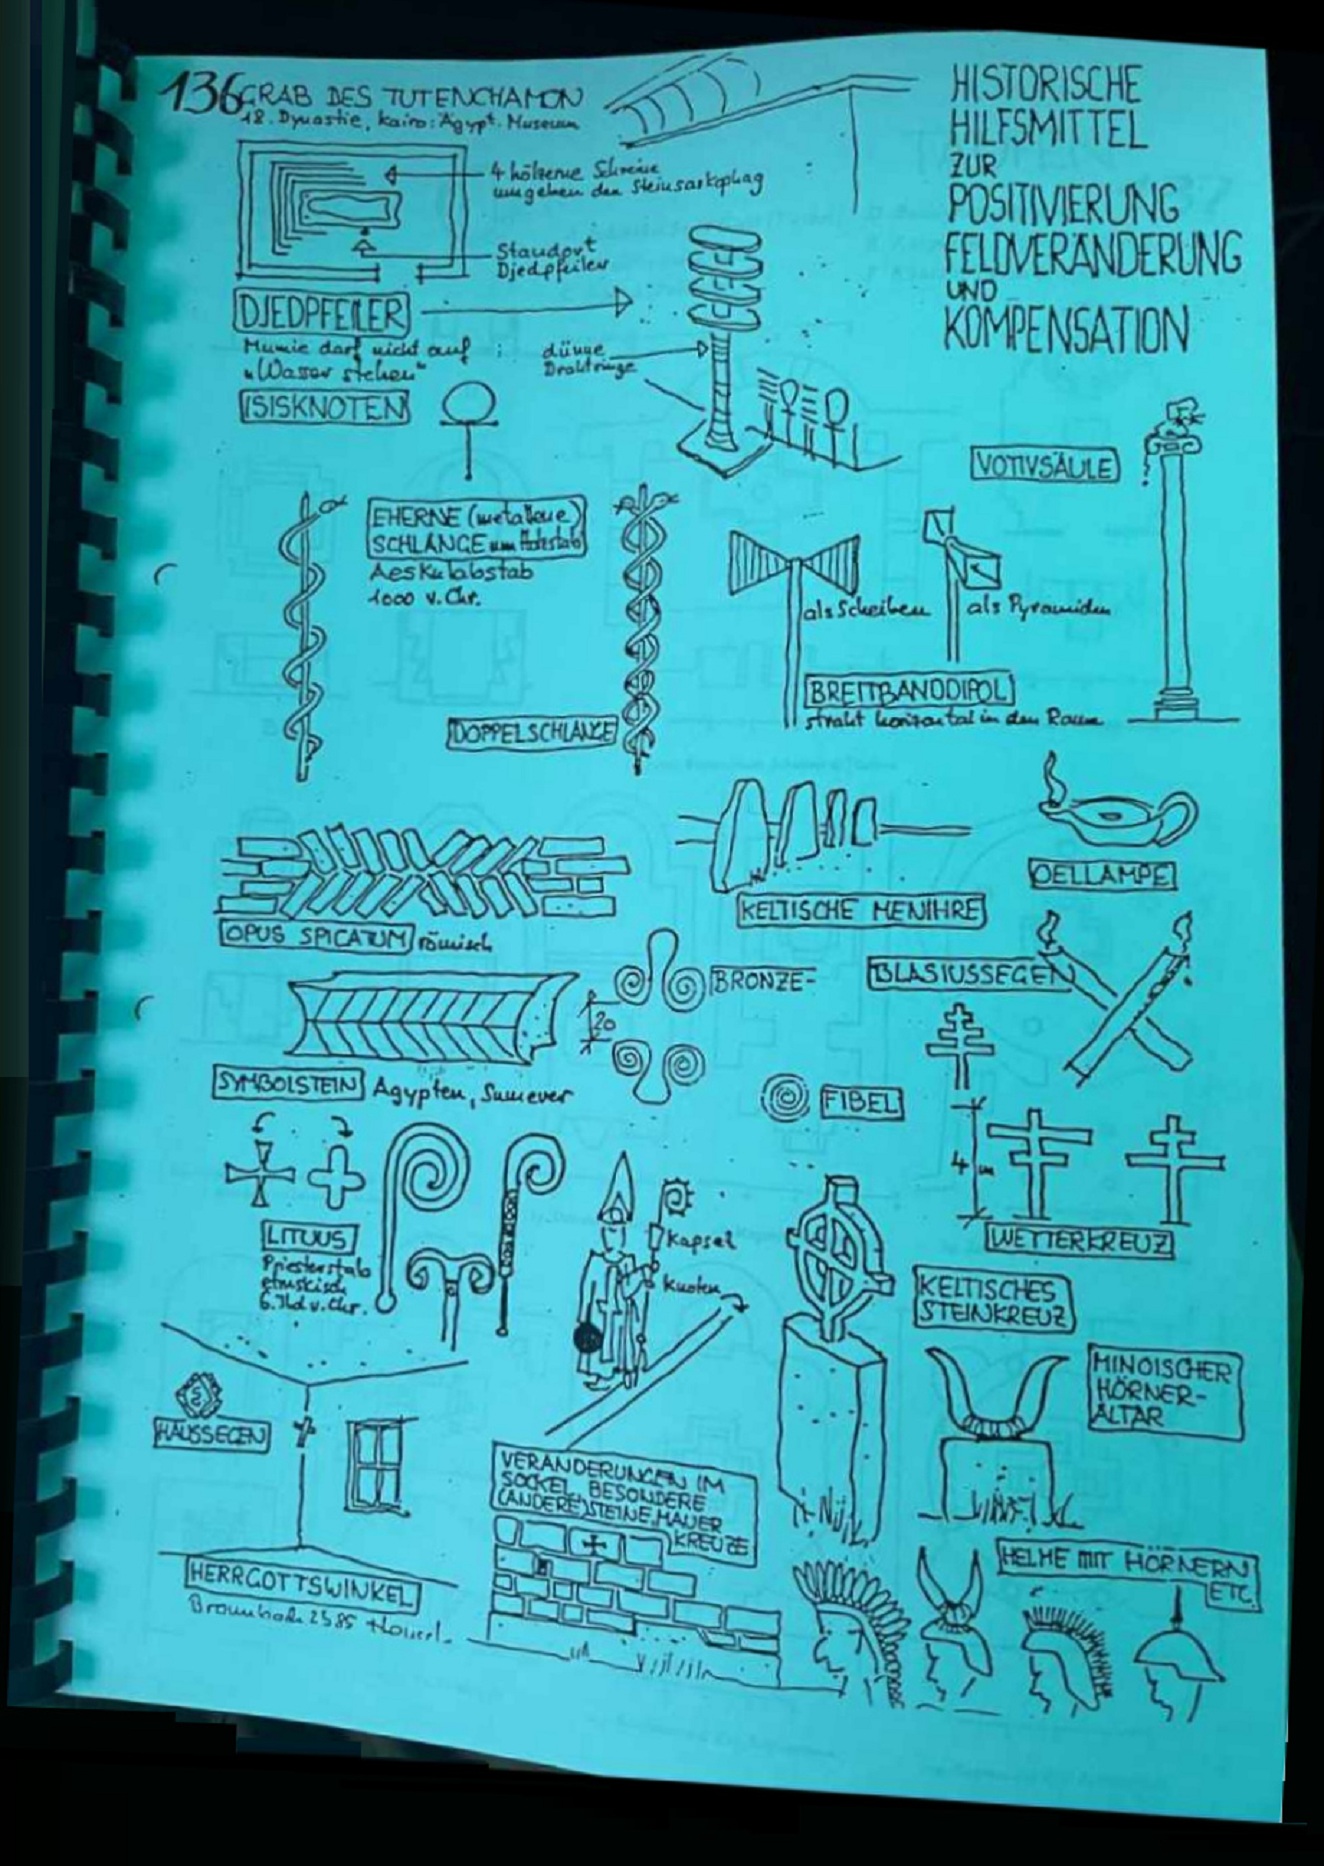 136 GRAB DES TUTENCHAMON
18. Dynastie, Kairo: Ägypt. Museum
HISTORISCHE
HILFSMITTEL
ZUR
POSITIVIERUNG
FELDVERÄNDERUNG
UND
KOMPENSATION
4 hölzerne Schreine
umgeben den Steinsarkophag
Standort
Djedpfeiler
DJEDPFEILER
Mumie darf nicht auf
"Wasser stehen"
dünne
Drahtringe
ISISKNOTEN
VOTIVSÄULE
EHERNE (metallene)
SCHLANGE um Holzstab
Aeskulabstab
1000 v. Chr.
als Scheiben
als Pyramiden
BREITBANDDIPOL
strahlt horizontal in den Raum
DOPPELSCHLANGE
OELLAMPE
KELTISCHE MENIHRE
OPUS SPICATUM römisch
BRONZE-
BLASIUSSEGEN
20
SYMBOLSTEIN Ägypten, Sumerer
FIBEL
4 m
WETTERKREUZ
LITUUS
Priesterstab
etruskisch
6. Jhd. v. Chr.
Kapsel
Knoten
KELTISCHES
STEINKREUZ
MINOISCHER
HÖRNER-
ALTAR
HAUSSEGEN
VERÄNDERUNGEN IM
SOCKEL, BESONDERE
(ANDERE) STEINE, MAUER
KREUZE
HELME MIT HÖRNERN
ETC.
HERRGOTTSWINKEL
2585